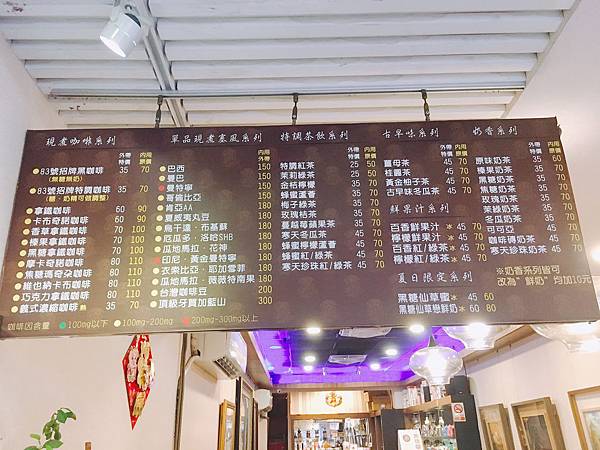 現煮咖啡系列
外帶特價 內用原價
83號招牌黑咖啡 35 70
(無糖無奶)
83號招牌特調咖啡 35 70
(糖、奶精可做調整)
拿鐵咖啡 60 90
卡布奇諾咖啡 60 90
香草拿鐵咖啡 70 100
榛果拿鐵咖啡 70 100
黑糖拿鐵咖啡 70 100
摩卡奇諾咖啡 70 100
焦糖瑪奇朵咖啡
維也納卡布咖啡
巧克力拿鐵咖啡
義式濃縮咖啡 熱 35 70
咖啡因含量 100mg以下 100mg-200mg 200mg-300mg以上
單品現煮塞風系列
內用原價
巴西 150
巴巴 150
曼特寧 150
哥倫比亞 150
肯亞AA 180
夏威夷丸豆 180
烏干達．布基蘇 180
厄瓜多．洛哈SHB 180
瓜地馬拉．花神 180
印尼．黃金曼特寧 180
衣索比亞．耶加雪菲 180
瓜地馬拉．薇薇特南果 180
台灣咖啡豆 200
頂級牙買加藍山 300
特調茶飲系列
外帶特價 內用原價
特調紅茶 25 50
茉莉綠茶 25 50
金桔檸檬
蜂蜜蘆薈
梅子綠茶
玫瑰桔茶
蔓越莓蘋果茶
寒天冬瓜茶
蜂蜜檸檬蘆薈
蜂蜜紅/綠茶 45 70
寒天珍珠紅/綠茶 45 70
古早味系列
外帶特價 內用原價
薑母茶 45 70
桂圓茶 45 70
黃金柚子茶 45 70
古早味冬瓜茶 45 70
鮮果汁系列
百香鮮果汁 冰 45 70
檸檬鮮果汁 冰 45 70
百香紅/綠茶 冰 45 70
檸檬紅/綠茶 冰 45 70
夏日限定系列
黑糖仙草蜜 冰 45 60
黑糖仙草戀鮮奶 冰 60 80
奶香系列
外帶特價 內用原價
原味奶茶 35 60
榛果奶茶
黑糖奶茶
焦糖奶茶
玫瑰奶茶
茉綠奶茶
可可亞
咖啡磚奶茶 45 70
寒天珍奶茶 45 70
※奶香系列皆可
改為"鮮奶" 均加10元